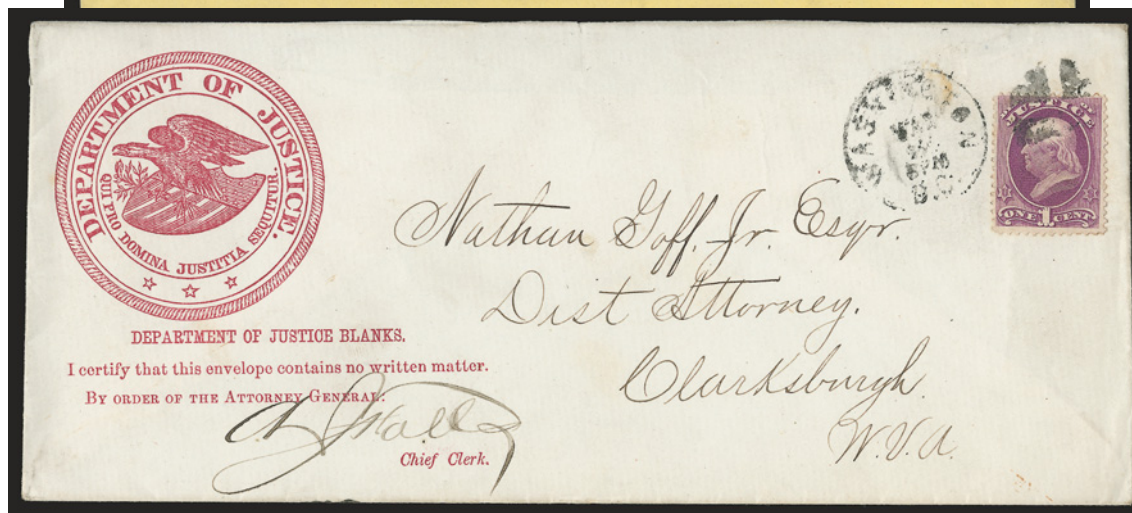 DEPARTMENT OF JUSTICE.
QUI PRO DOMINA JUSTITIA SEQUITUR.
DEPARTMENT OF JUSTICE BLANKS.
I certify that this envelope contains no written matter.
BY ORDER OF THE ATTORNEY GENERAL:
Chief Clerk.
WASHINGTON
D.C.
JUSTICE
ONE 1 CENT
Nathan Goff. Jr. Esqr.
Dist Attorney.
Clarksburgh.
W.V.A.